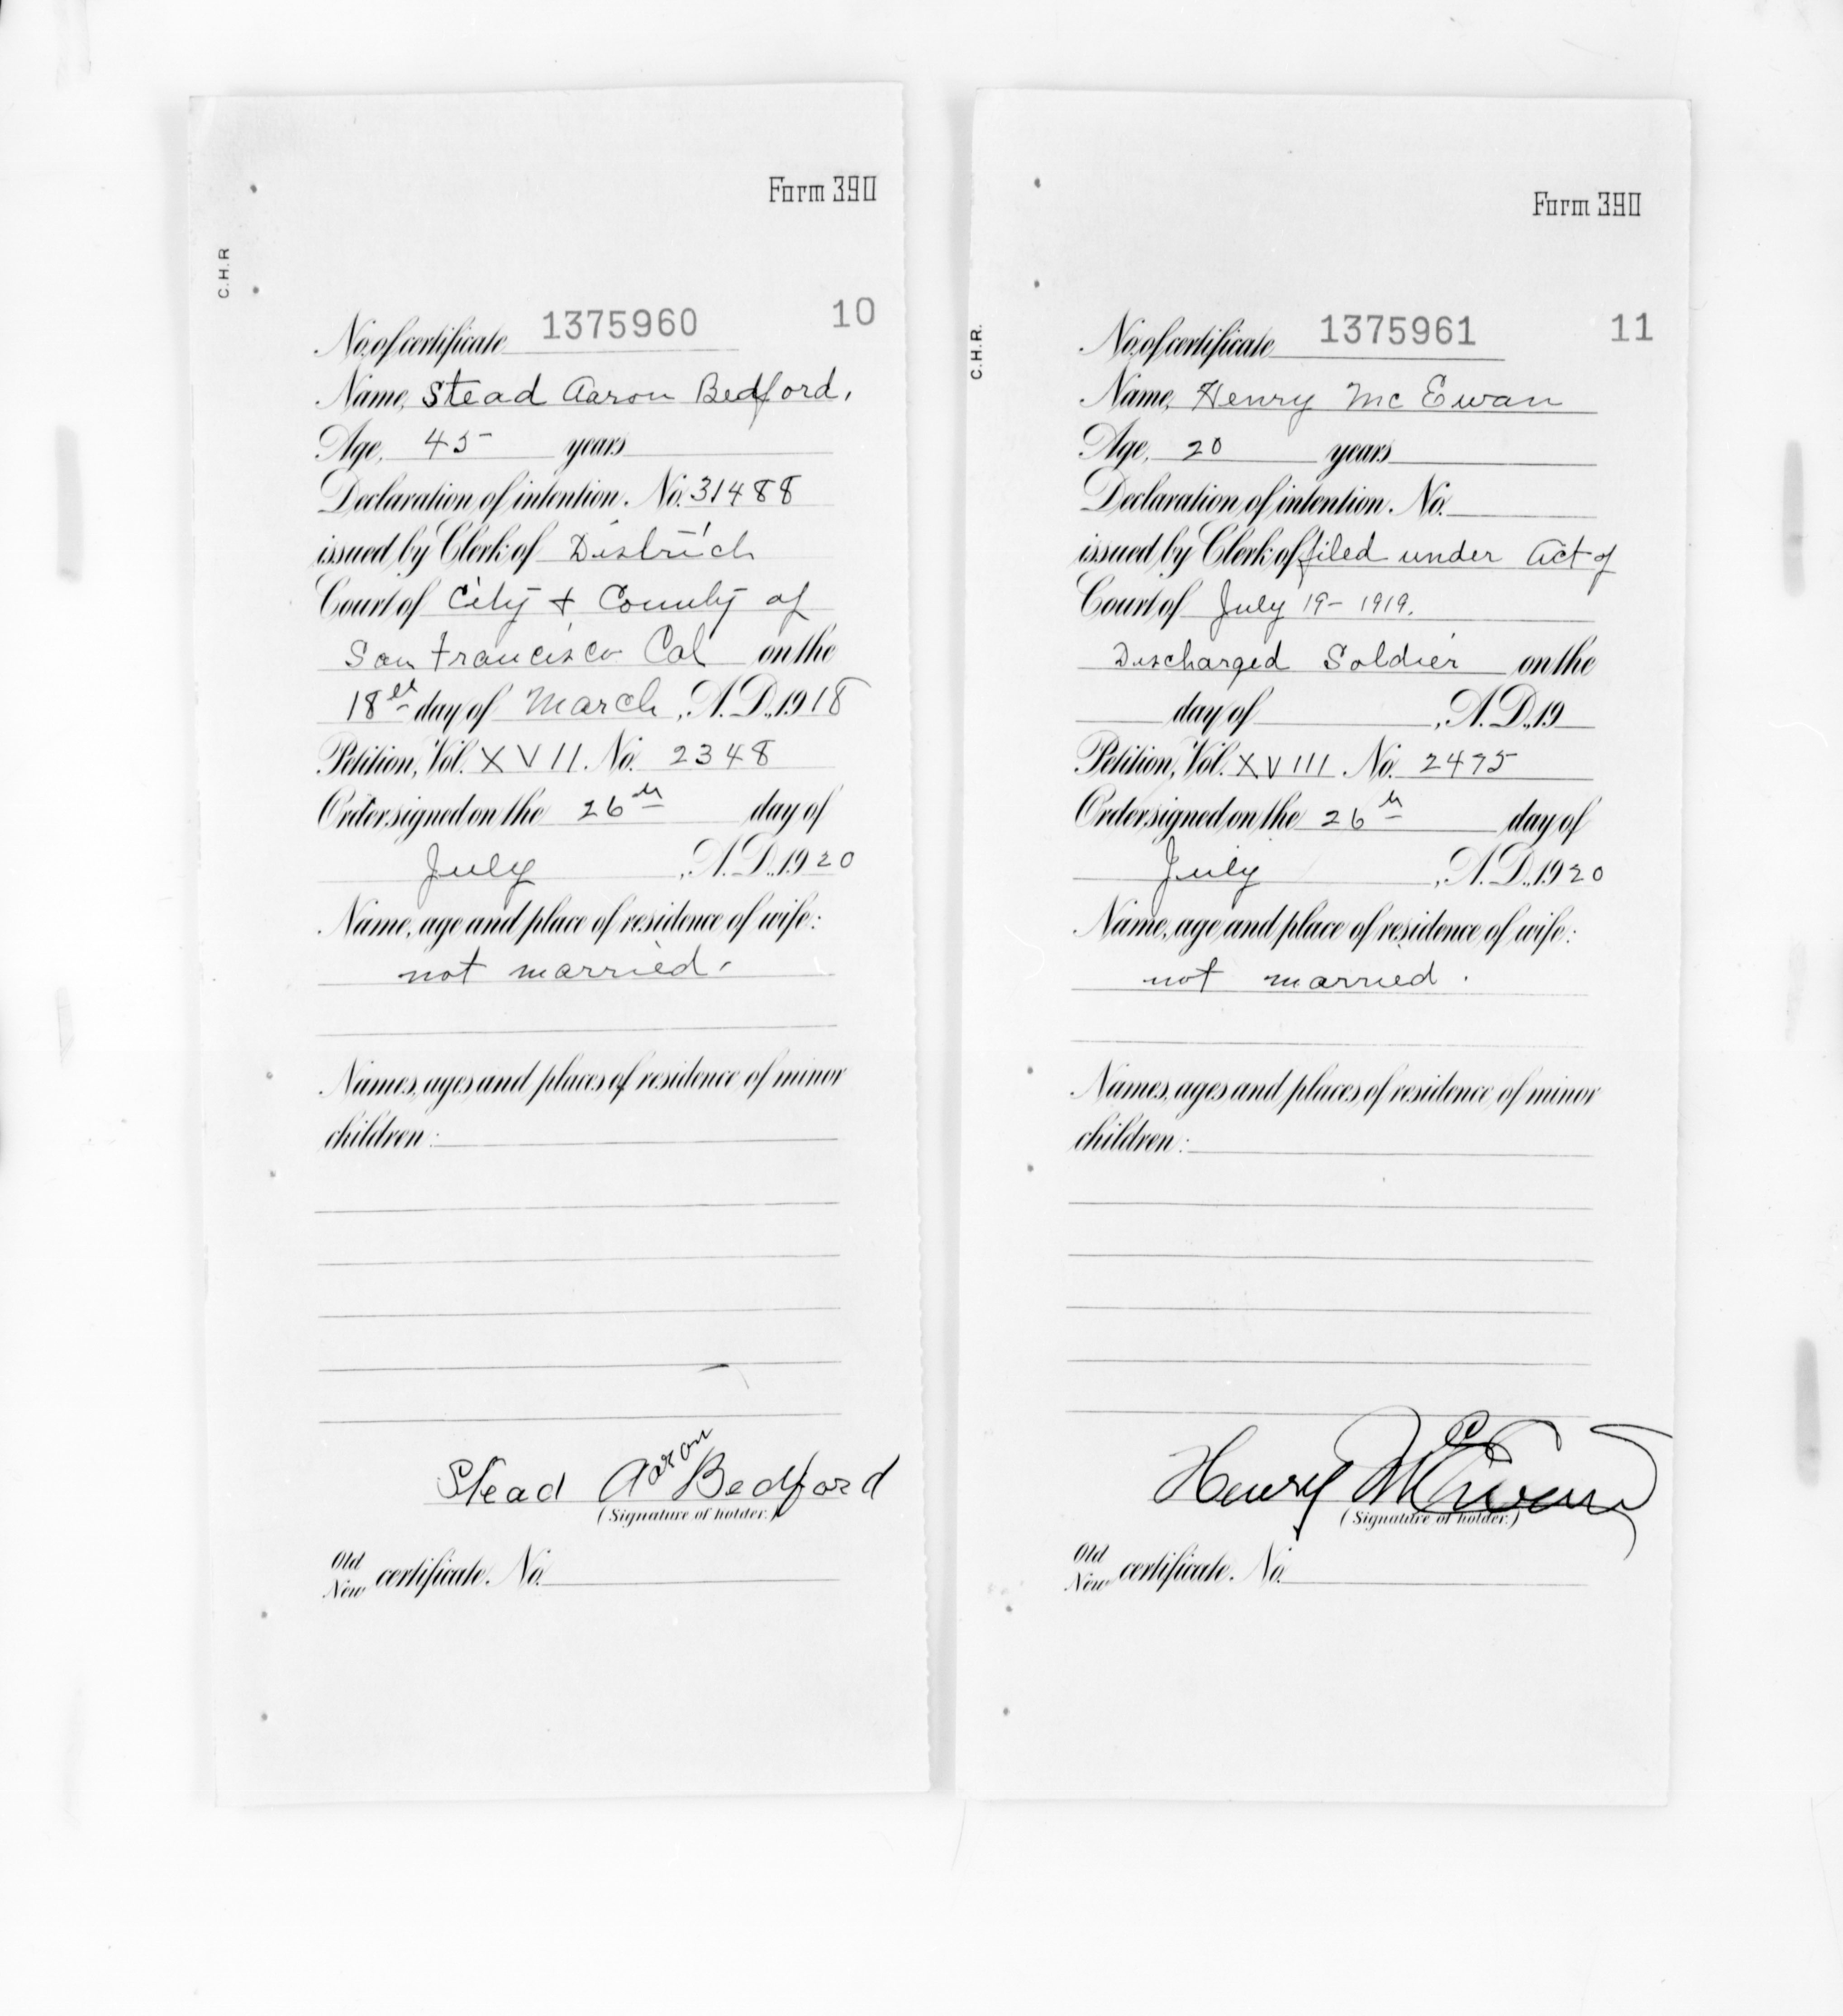 Form 390
C.H.R
No. of certificate 1375960 10
Name, Stead Aaron Bedford.
Age, 45 years
Declaration of intention. No. 31488
issued by Clerk of District
Court of City & County of
San Francisco Cal on the
18th day of March, A.D., 1918
Petition, Vol. XVII. No. 2348
Order signed on the 26th day of
July, A.D., 1920
Name, age and place of residence of wife:
not married.
Names, ages and places of residence of minor
children:
Stead Aaron Bedford
(Signature of holder.)
Old
New certificate. No.
Form 390
C.H.R.
No. of certificate 1375961 11
Name, Henry Mc Ewan
Age, 20 years
Declaration of intention. No.
issued by Clerk of filed under Act of
Court of July 19 - 1919.
Discharged Soldier on the
day of , A.D., 19
Petition, Vol. XVIII. No. 2475
Order signed on the 26th day of
July, A.D., 1920
Name, age and place of residence of wife:
not married.
Names, ages and places of residence of minor
children:
Henry McEwan
(Signature of holder.)
Old
New certificate. No.